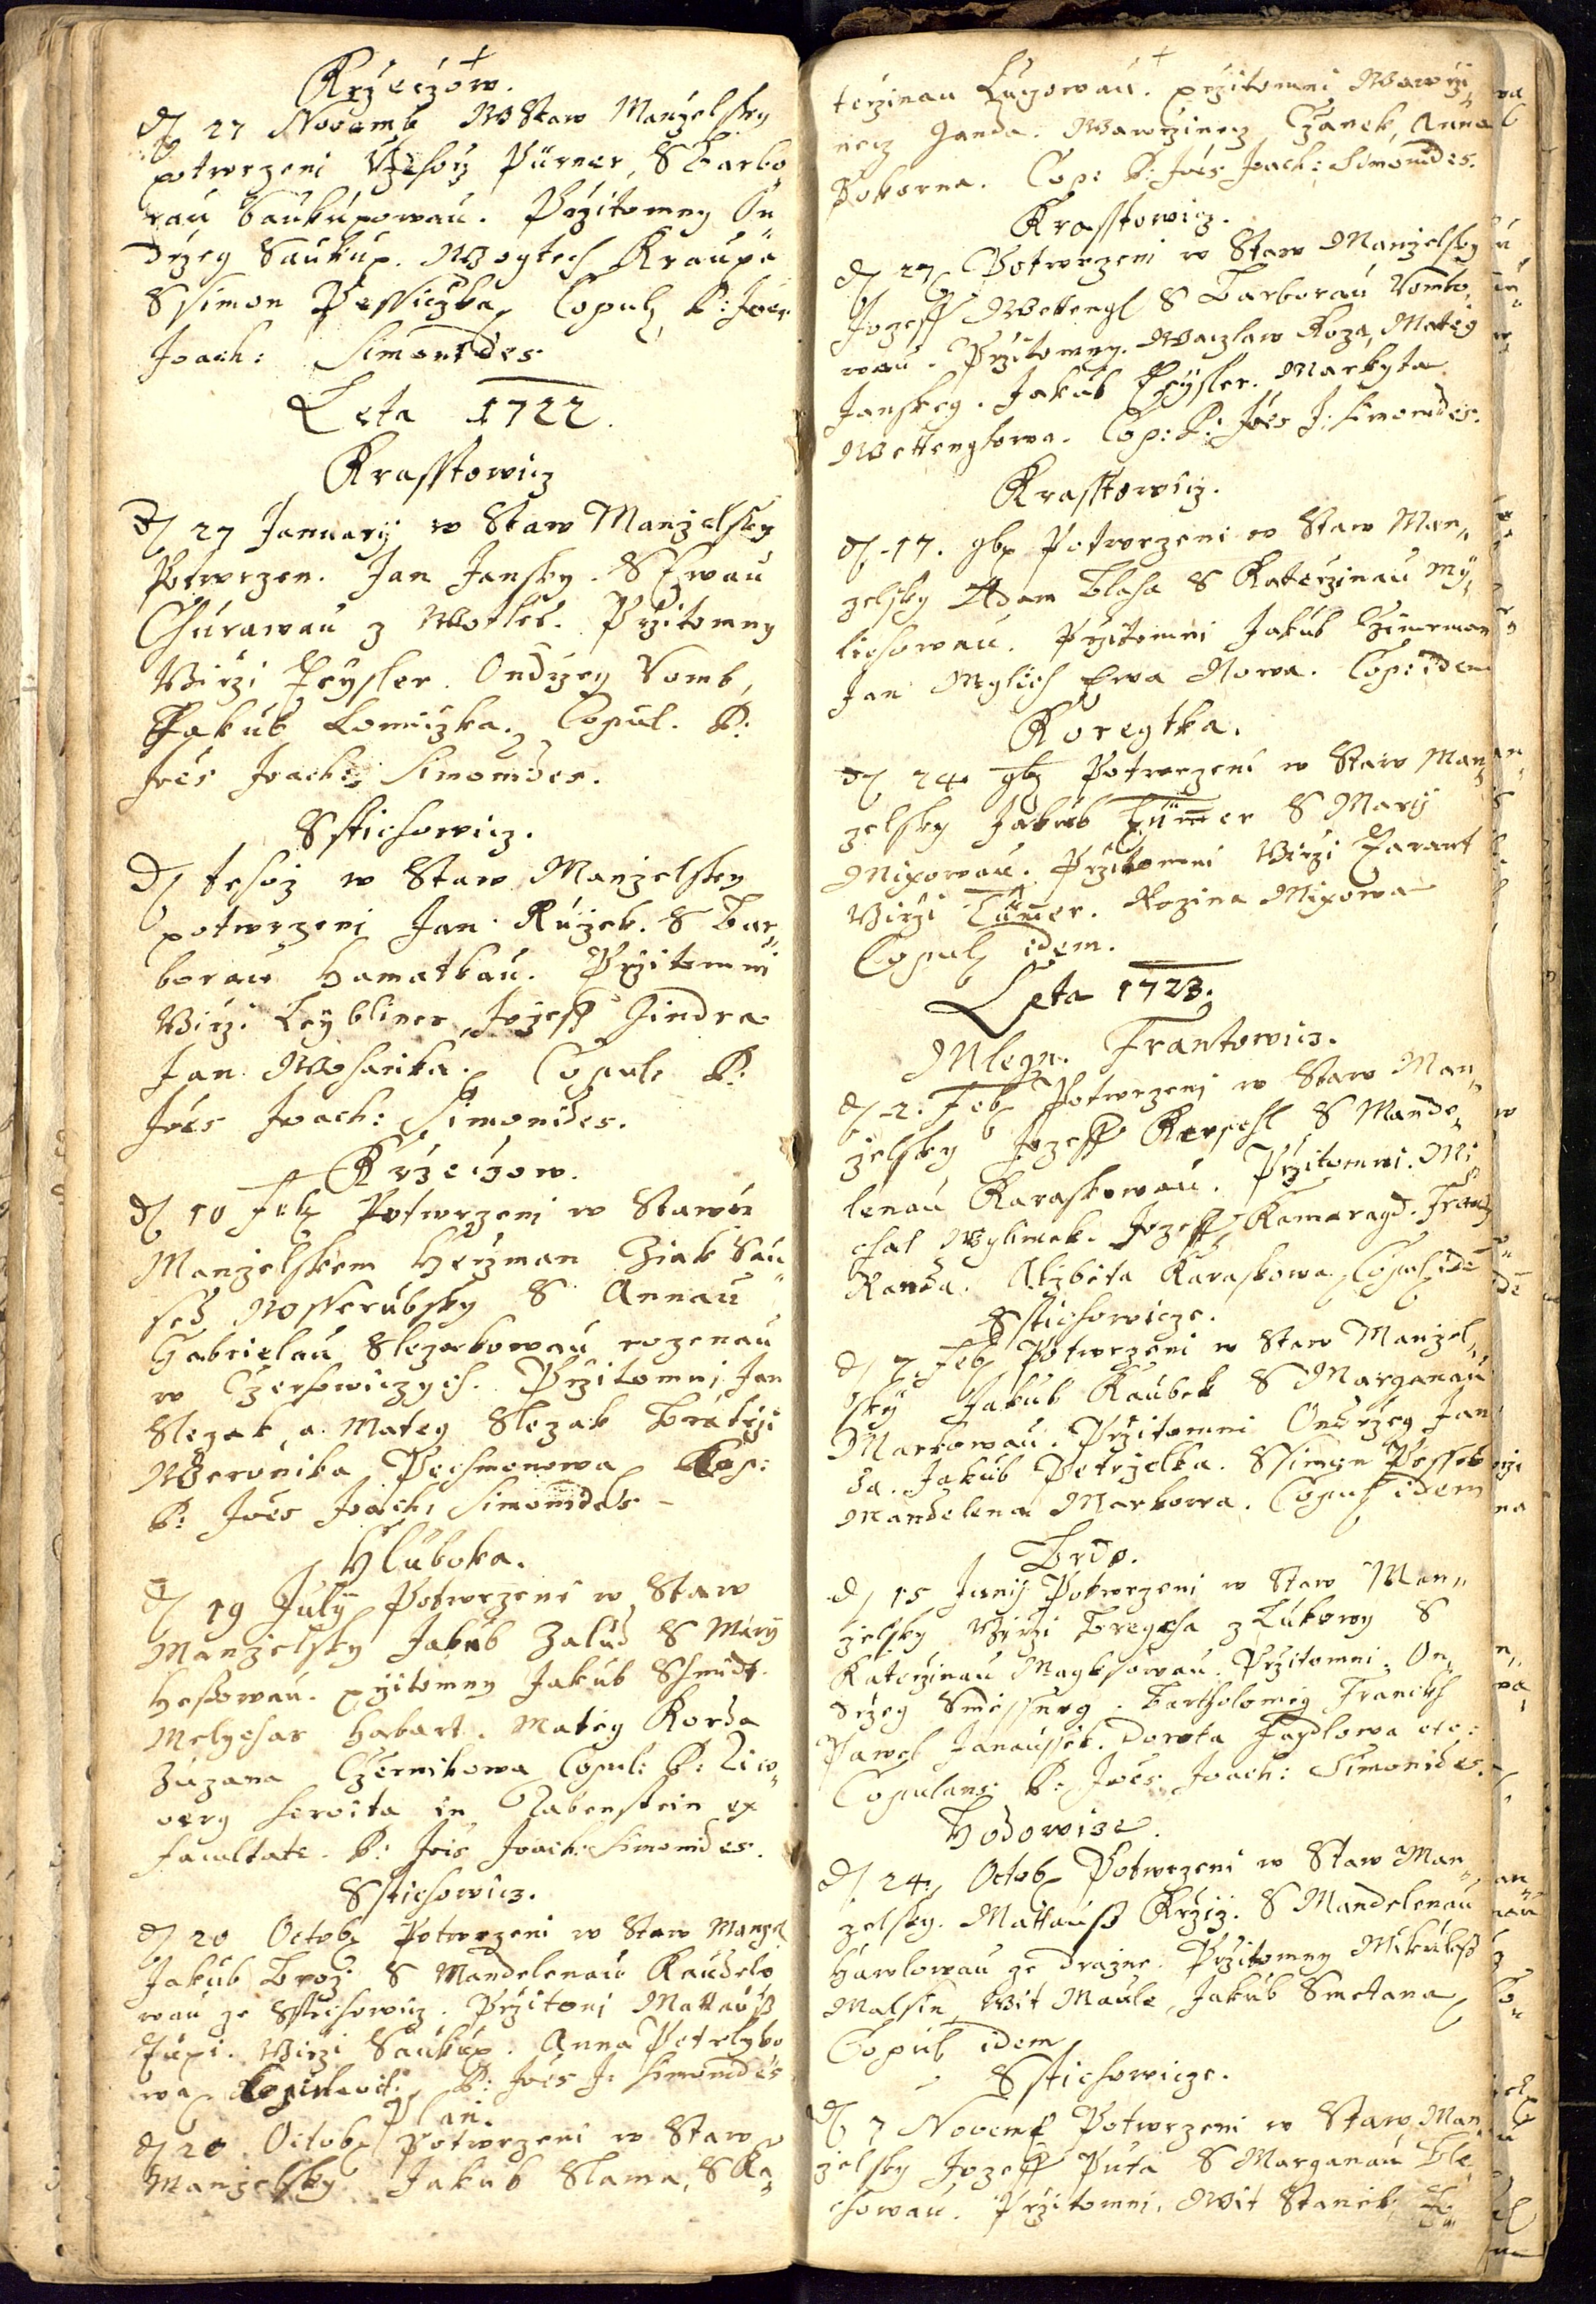 Krzeczow.
D 27 Novemb WStaw Manzelsky
potwrzeni Rzehorz Pürner, S Barbo„
rau Saukupowau. Przitomny On„
drzeg Saukup. Wogtech Kraupa
Ssimon Pessiczka Copul P: Joes
Joach: Simonides
Leta 1722.
Krasstowicz
D 27 January w Staw Manzelsky
Potwrzen. Jan Jansky. S Ewau
Churawau z Wotleb. Przitomny
Wirzi Feysler. Ondrzey Vomb,
Jakub Lomiczka. Copul. P:
Joes Joach: Simonides.
Sstichowicz.
D tehoz w Staw Manzelsky
potwrzeni Jan Ružek. S Bar„
borau Hamatkau. Przitomni
Wirzi Leybliner Jozeff Jindra
Jan Wohanka. Copul: P:
Joes Joach: Simonides.
Krzeczow.
D 10 Feb Potwrzeni w Stawu
Manzelskem Herzman Ziak Sau„
sed Wosserubsky S Annau
Gabrielau Slezakowau rozenau
w Czerhowiczych. Przitomni Jan
Slezak, a Mateg Slezak Bratrzi
Weronika Pechmonowa Cop:
P: Joes Joach: Simonides –
Hluboka.
D 19 July Potwrzeni w Staw
Manzelsky Jakub Zalud S Mary
Heskowau. przitomny Jakub Schmidt.
Melychar Habart. Mateg Korda
Zuzana Czernikowa Copul: P:
Servita in Rabenstein ex
facultate. P: Jois Joach: Simonides.
Sstichowicz.
D 20 Octob Potwrzeni w Staw Manzel
Jakub Broz S Mandelenau Kaudelo
wau ze Sstichowicz. Przitoni Mattauss
Zupi. Wirzi Saukup. Anna Petrlyko
wa Copulavit: P: Joes J: Simonides
Plan.
D 20 Octob Potwrzeni w Staw
Manzelsky Jakub Slama, S Ka„
terzinau Luczowau. przitomni Wawrzi„
necz Janda. Wawrzinecz Czanek, Anna
Pokorna. Cop: P: Joes Joach: Simonides.
Krasstowicz.
D 27 Potwrzeni w Staw Manzelsky
Jozeff Wettengl S Barborau Vombo„
wau. Przitomny. Waczlaw Koza, Mateg
Janskeg. Jakub Feysler. Markyta
Wettenglowa. Cop: P: Joes J: Simonides.
Krasstowicz.
D 17. 9bz Potwrzeni w Staw Man„
zelsky Adam Blaha S Katerzinau My„
lichowau. Przitomni Jakub Czimrman
Jan Mylich Ewa Nowa. Cop: idem
Koregtka.
D 24 9bz Potwrzeni w Staw Man„
zelsky Jakub S Mary
Mixowau. Przitomni Wirzi Farart
Wirzi Rozina Mixowa
Copul idem.
Leta 1723.
Mlegn. Frantowicz.
D 2. Feb Potwrzeni w Staw Man„
zelsky Jozeff Kerschl S Mande„
lenau Karaskowau. Przitomni. Mi„
chal Wylimek. Jozeff Kamaragd.
Randa. Alzbeta Karaskowa Copul ide
Sstichowicze.
D 7 Feb Potwrzeni w Staw Manzel„
sky Jakub Kaubek S Marganau
Markowau. Przitomni Ondrzeg Jan
da. Jakub Petrzelka. Ssimon Pessek
Mandelena Markowa. Copul idem
Brdo.
D 15 Junij Potwrzeni w Staw Man„
zelsky Wirzi Bregcha z Lukowy S
Katerzinau Magksowau. Przitomni. On„
drzeg Bartholomeg Franckh
Pawel Janaussek. Dorota Faydlowa etc:
Copulans: P: Joes Joach: Simonides.
Hodowize.
D 24 Octob Potwrzeni w Staw Man„
zelsky. Mattauss Krziz. S Mandelenau
Hawlowau ze Drazne. Przitomny Mikulass
Malsin, Wit Maule, Jakub Smetana
Copul idem
Sstichowicze.
D 7 Novemb Potwrzeni w Staw Man
zelsky Jozeff Puta S Marganau Ble„
chowau. Przitomni. Wit Stanek,